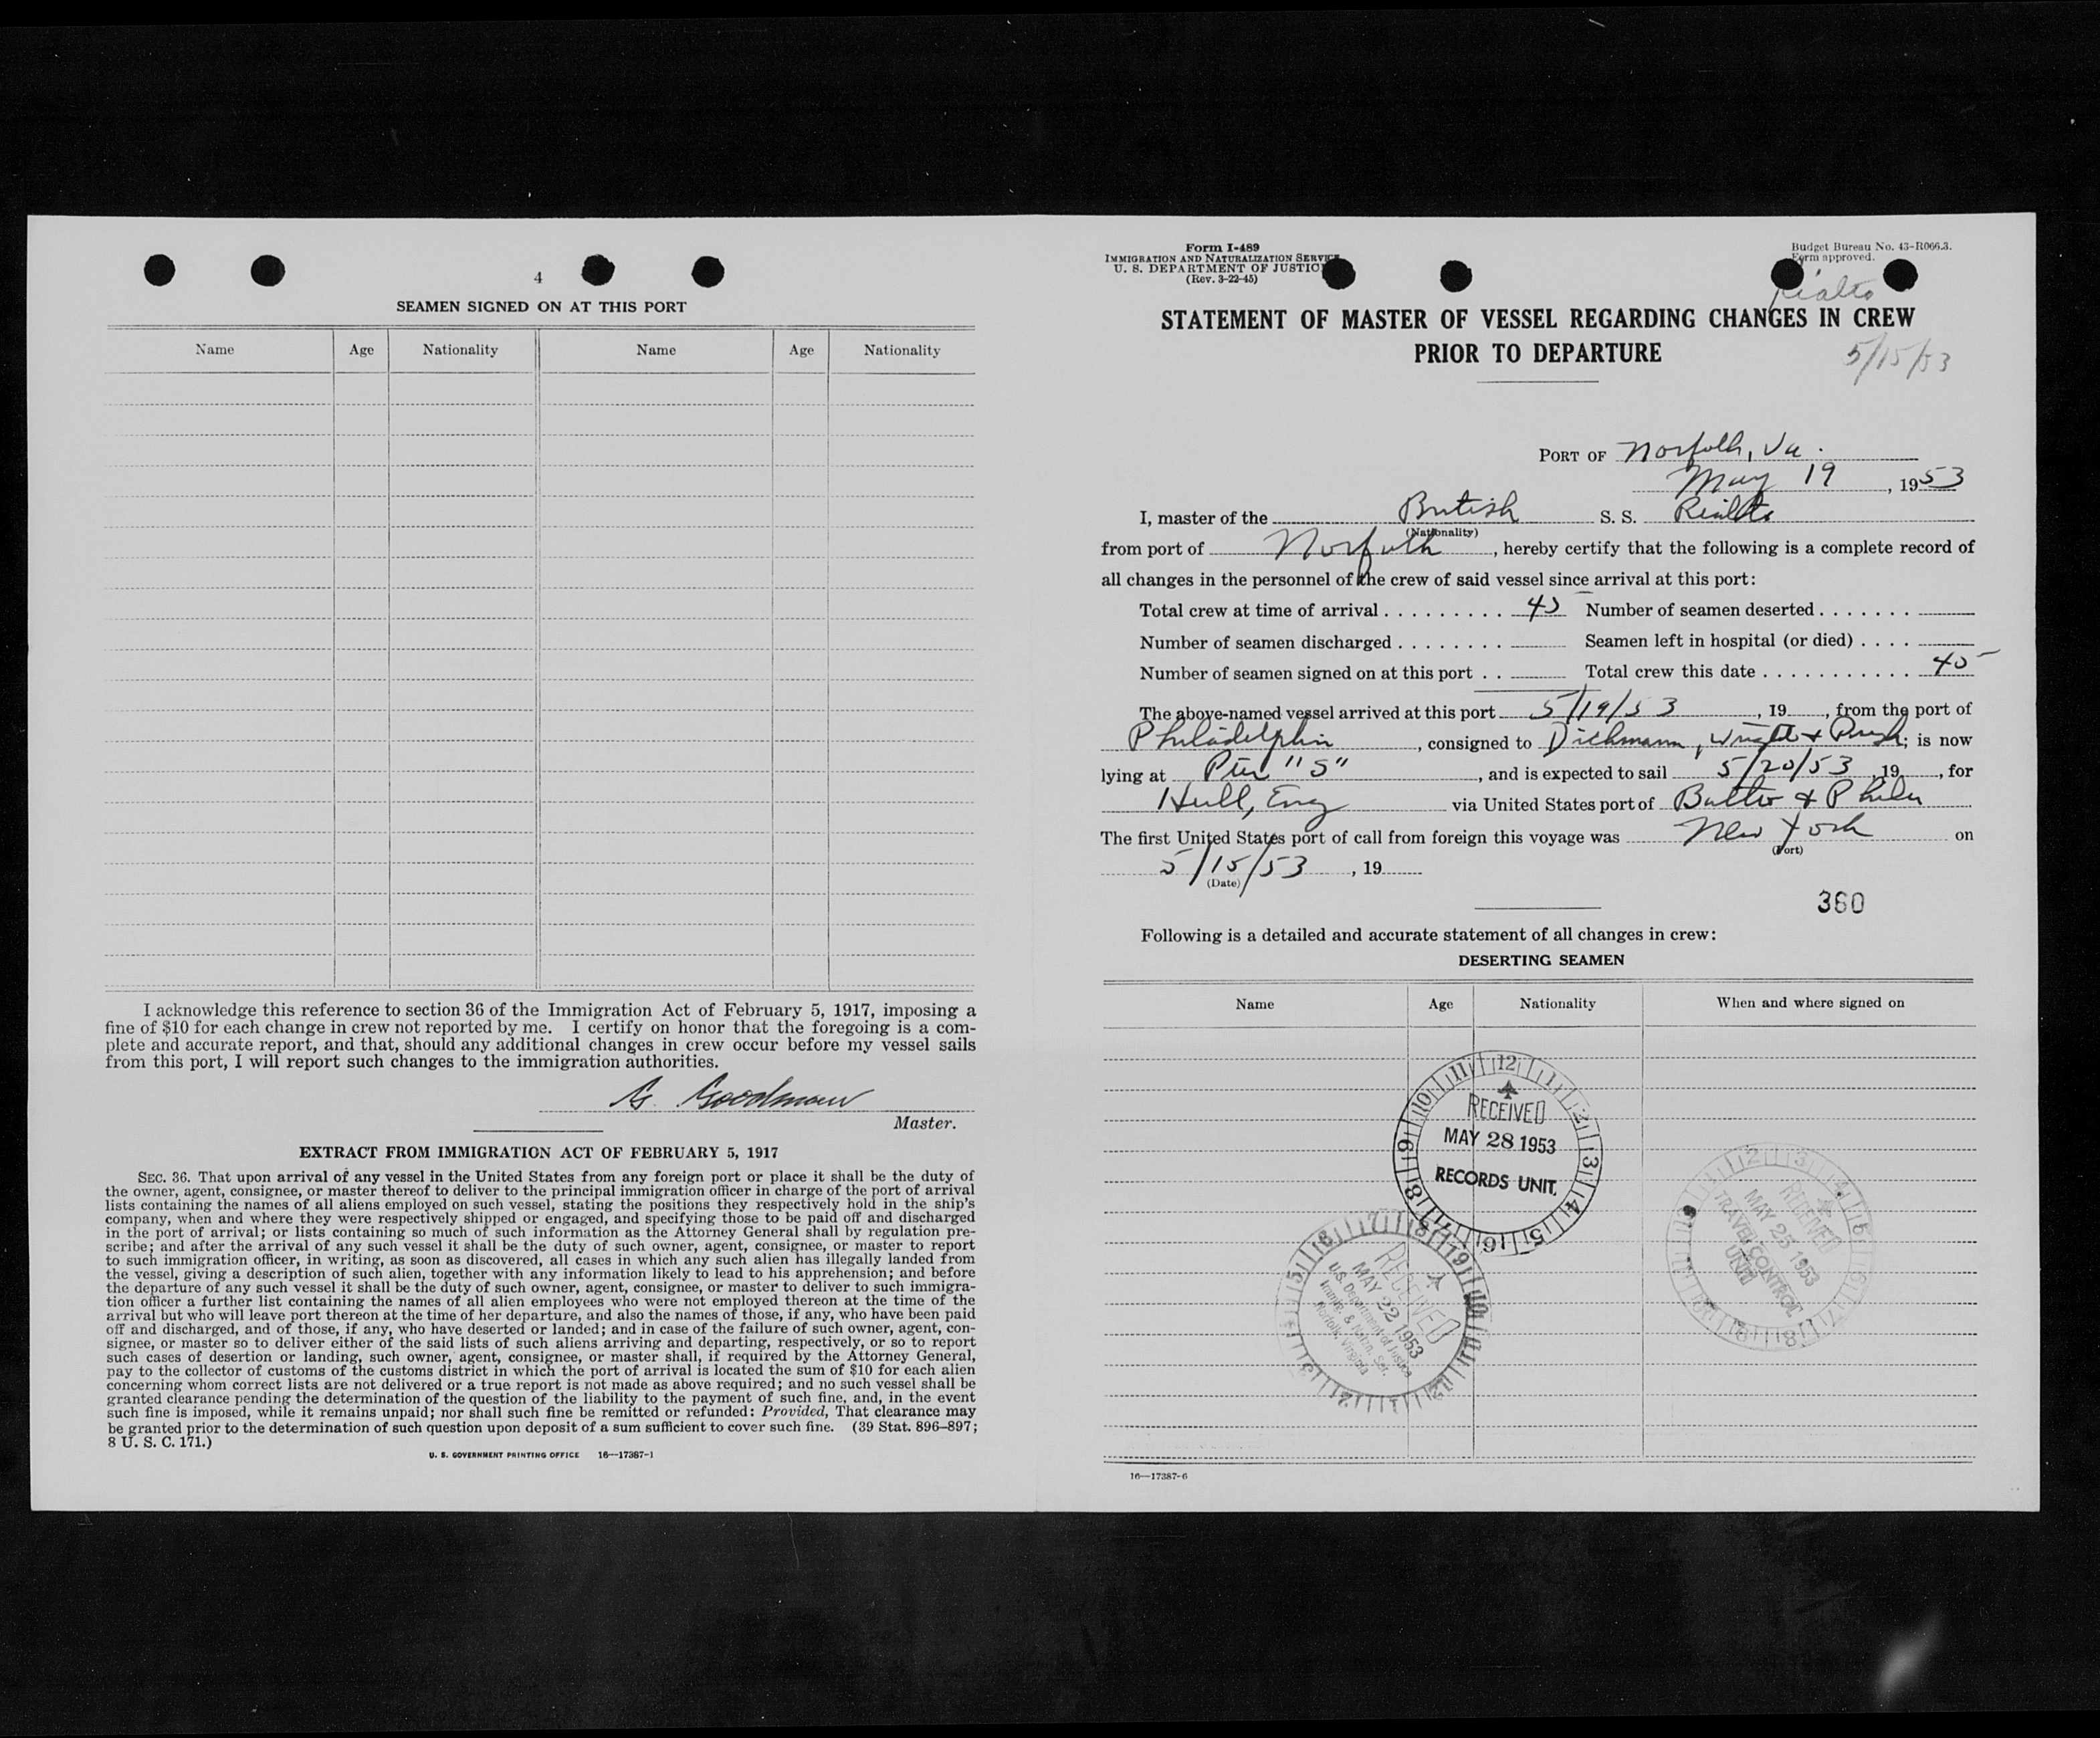 4
SEAMEN SIGNED ON AT THIS PORT
Name Age Nationality Name Age Nationality
I acknowledge this reference to section 36 of the Immigration Act of February 5, 1917, imposing a
fine of $10 for each change in crew not reported by me. I certify on honor that the foregoing is a com-
plete and accurate report, and that, should any additional changes in crew occur before my vessel sails
from this port, I will report such changes to the immigration authorities.
G. Goodman
Master.
EXTRACT FROM IMMIGRATION ACT OF FEBRUARY 5, 1917
SEC. 36. That upon arrival of any vessel in the United States from any foreign port or place it shall be the duty of
the owner, agent, consignee, or master thereof to deliver to the principal immigration officer in charge of the port of arrival
lists containing the names of all aliens employed on such vessel, stating the positions they respectively hold in the ship's
company, when and where they were respectively shipped or engaged, and specifying those to be paid off and discharged
in the port of arrival; or lists containing so much of such information as the Attorney General shall by regulation pre-
scribe; and after the arrival of any such vessel it shall be the duty of such owner, agent, consignee, or master to report
to such immigration officer, in writing, as soon as discovered, all cases in which any such alien has illegally landed from
the vessel, giving a description of such alien, together with any information likely to lead to his apprehension; and before
the departure of any such vessel it shall be the duty of such owner, agent, consignee, or master to deliver to such immigra-
tion officer a further list containing the names of all alien employees who were not employed thereon at the time of the
arrival but who will leave port thereon at the time of her departure, and also the names of those, if any, who have been paid
off and discharged, and of those, if any, who have deserted or landed; and in case of the failure of such owner, agent, con-
signee, or master so to deliver either of the said lists of such aliens arriving and departing, respectively, or so to report
such cases of desertion or landing, such owner, agent, consignee, or master shall, if required by the Attorney General,
pay to the collector of customs of the customs district in which the port of arrival is located the sum of $10 for each alien
concerning whom correct lists are not delivered or a true report is not made as above required; and no such vessel shall be
granted clearance pending the determination of the question of the liability to the payment of such fine, and, in the event
such fine is imposed, while it remains unpaid; nor shall such fine be remitted or refunded: Provided, That clearance may
be granted prior to the determination of such question upon deposit of a sum sufficient to cover such fine. (39 Stat. 896–897;
8 U. S. C. 171.)
U. S. GOVERNMENT PRINTING OFFICE 16—17387-1
Form I-489
IMMIGRATION AND NATURALIZATION SERVICE
U. S. DEPARTMENT OF JUSTICE
(Rev. 3-22-45)
Budget Bureau No. 43-R066.3.
Form approved.
Rialto
STATEMENT OF MASTER OF VESSEL REGARDING CHANGES IN CREW
PRIOR TO DEPARTURE
5/15/53
PORT OF Norfolk, Va.
May 19, 1953
I, master of the British S. S. Rialto
(Nationality)
from port of Norfolk, hereby certify that the following is a complete record of
all changes in the personnel of the crew of said vessel since arrival at this port:
Total crew at time of arrival . . . . . . . . . 45 Number of seamen deserted . . . . . . .
Number of seamen discharged . . . . . . . . Seamen left in hospital (or died) . . . .
Number of seamen signed on at this port . . Total crew this date . . . . . . . . . . . 45
The above-named vessel arrived at this port 5/19/53, 19, from the port of
Philadelphia, consigned to Dichmann, Wright & Pugh; is now
lying at Pier "S", and is expected to sail 5/20/53, 19, for
Hull, Eng via United States port of Balto & Phila
The first United States port of call from foreign this voyage was New York on
(Port)
5/15/53, 19
(Date)
360
Following is a detailed and accurate statement of all changes in crew:
DESERTING SEAMEN
Name Age Nationality When and where signed on
RECEIVED
MAY 28 1953
RECORDS UNIT.
RECEIVED
MAY 22 1953
U.S. Department of Justice
Immig. & Natzn. Ser.
Norfolk, Virginia
RECEIVED
MAY 25 1953
TRAVEL CONTROL
UNIT
16—17387-6